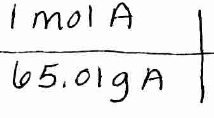 1 mol A
65.01g A